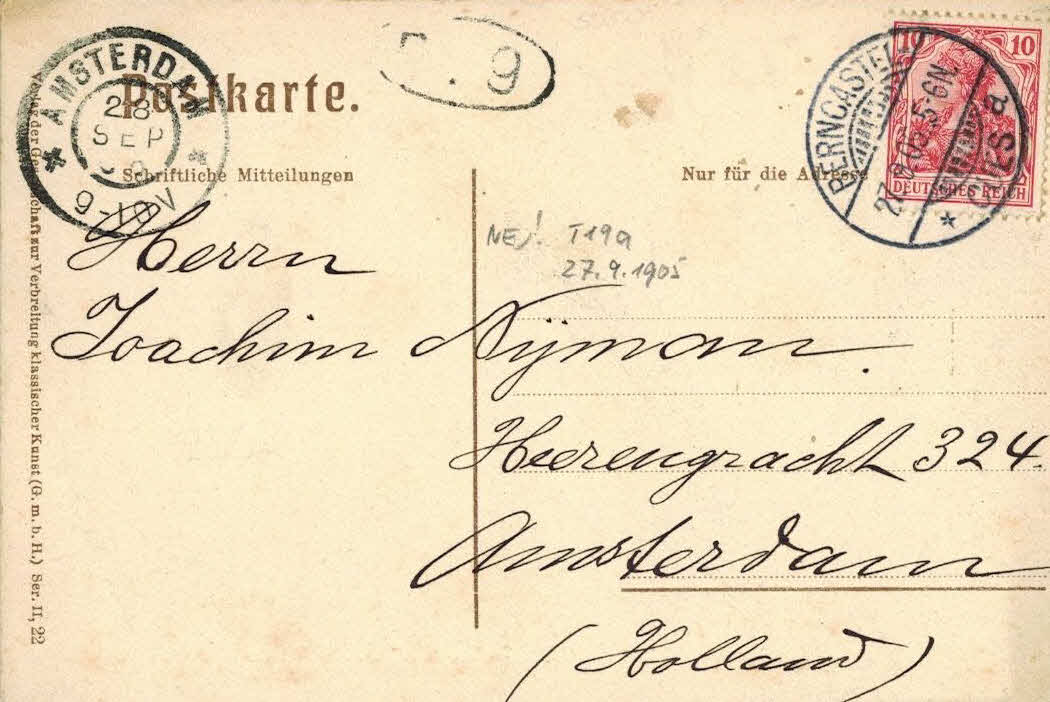 AMSTERDAM
28
SEP
9-10V
9
Postkarte.
BERNCASTEL
27.9.05.5-6N.
CUES a
10 10
DEUTSCHES REICH
Schriftliche Mitteilungen
Nur für die Adresse
T19a
27.9.1905
Herrn
Joachim Nijman.
Heerengracht 324.
Amsterdam
(Holland)
Verlag der Gesellschaft zur Verbreitung klassischer Kunst (G. m. b. H.) Ser. II, 22